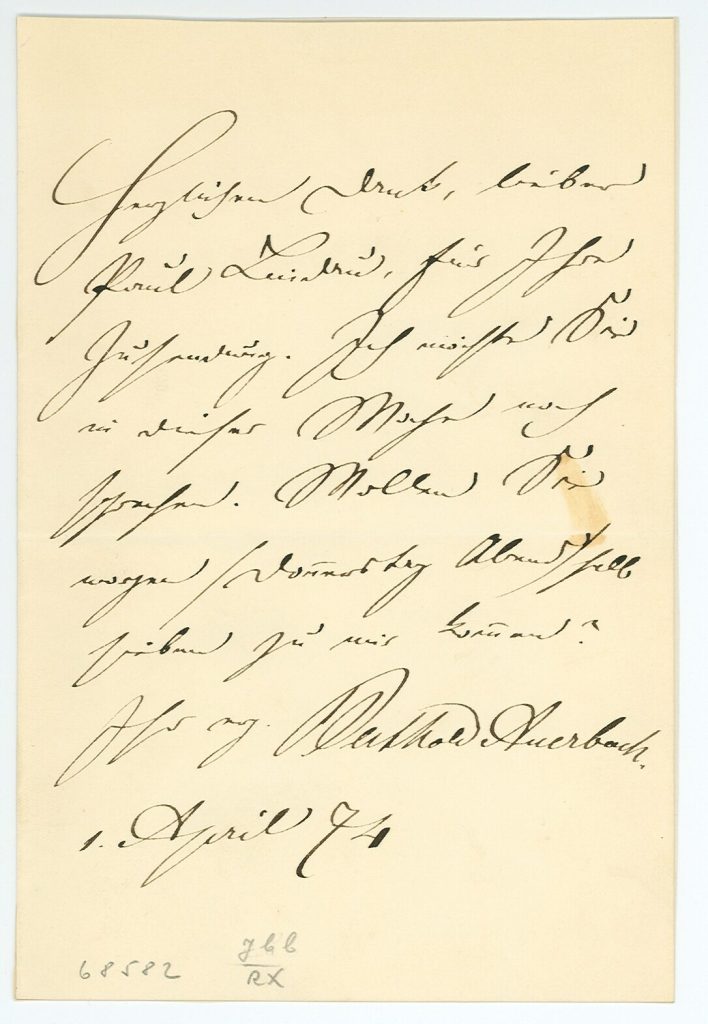 Herzlichen Dank, lieber
Paul Lindau, für Ihre
Zusendung. Ich möchte Sie
in dieser Woche noch
sprechen. Wollen Sie
morgen (Donnerstag Abend) halb
sieben zu mir kom̅en?
Ihr erg. Berthold Auerbach.
1. April 74
68582
RX